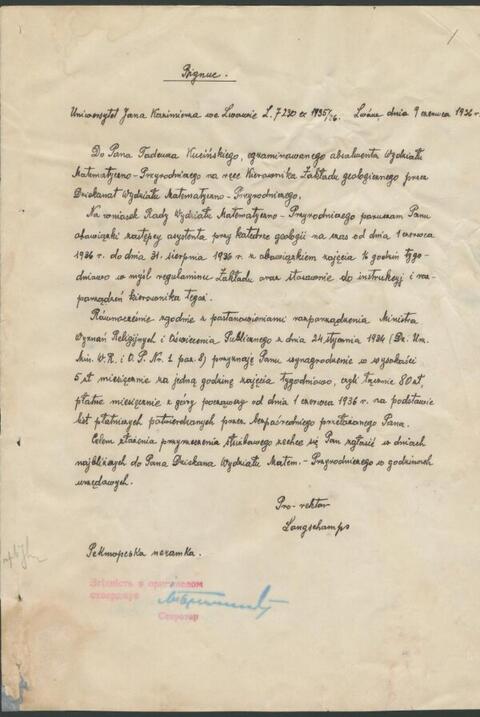 Uniwersytet Jana Kazimierza we Lwowie L. 7230 ex 1935/36. Lwów, dnia 9 czerwca 1936 r.
Do Pana Tadeusza Kucińskiego, egzaminowanego absolwenta Wydziału
Matematyczno-Przyrodniczego na ręce Kierownika Zakładu geologicznego przez
Dziekanat Wydziału Matematyczno-Przyrodniczego.
Na wniosek Rady Wydziału Matematyczno-Przyrodniczego poruczam Panu
obowiązki zastępcy asystenta przy katedrze geologii na czas od dnia 1 czerwca
1936 r. do dnia 31. sierpnia 1936 r. z obowiązkiem zajęcia 16 godzin tygo-
dniowo w myśl regulaminu Zakładu oraz stosownie do instrukcji i roz-
porządzeń kierownika tegoż.
Równocześnie zgodnie z postanowieniami rozporządzenia Ministra
Wyznań Religijnych i Oświecenia Publicznego z dnia 24 stycznia 1934 (Dz. Urz.
Min. W.R. i O.P. Nr. 1 par. 8) przyznaję Panu wynagrodzenie w wysokości
5 zł miesięcznie za jedną godzinę zajęcia tygodniowo, czyli łącznie 80 zł,
płatne miesięcznie z góry począwszy od dnia 1 czerwca 1936 r. na podstawie
list płatniczych potwierdzonych przez bezpośredniego przełożonego Pana.
Celem złożenia przyrzeczenia służbowego zechce się Pan zgłosić w dniach
najbliższych do Pana Dziekana Wydziału Matem.-Przyrodniczego w godzinach
urzędowych.
Pro-rektor
Longchamps
Ректорська печатка.
Згідність з оригіналом
стверджує
Секретар